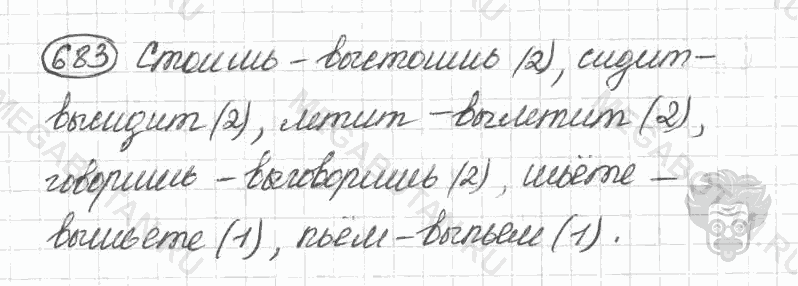 683 Стоишь – выстоишь (2), сидит –
высидит (2), летит – вылетит (2),
говоришь – выговоришь (2), шьёте –
вышьете (1), пьём – выпьем (1).